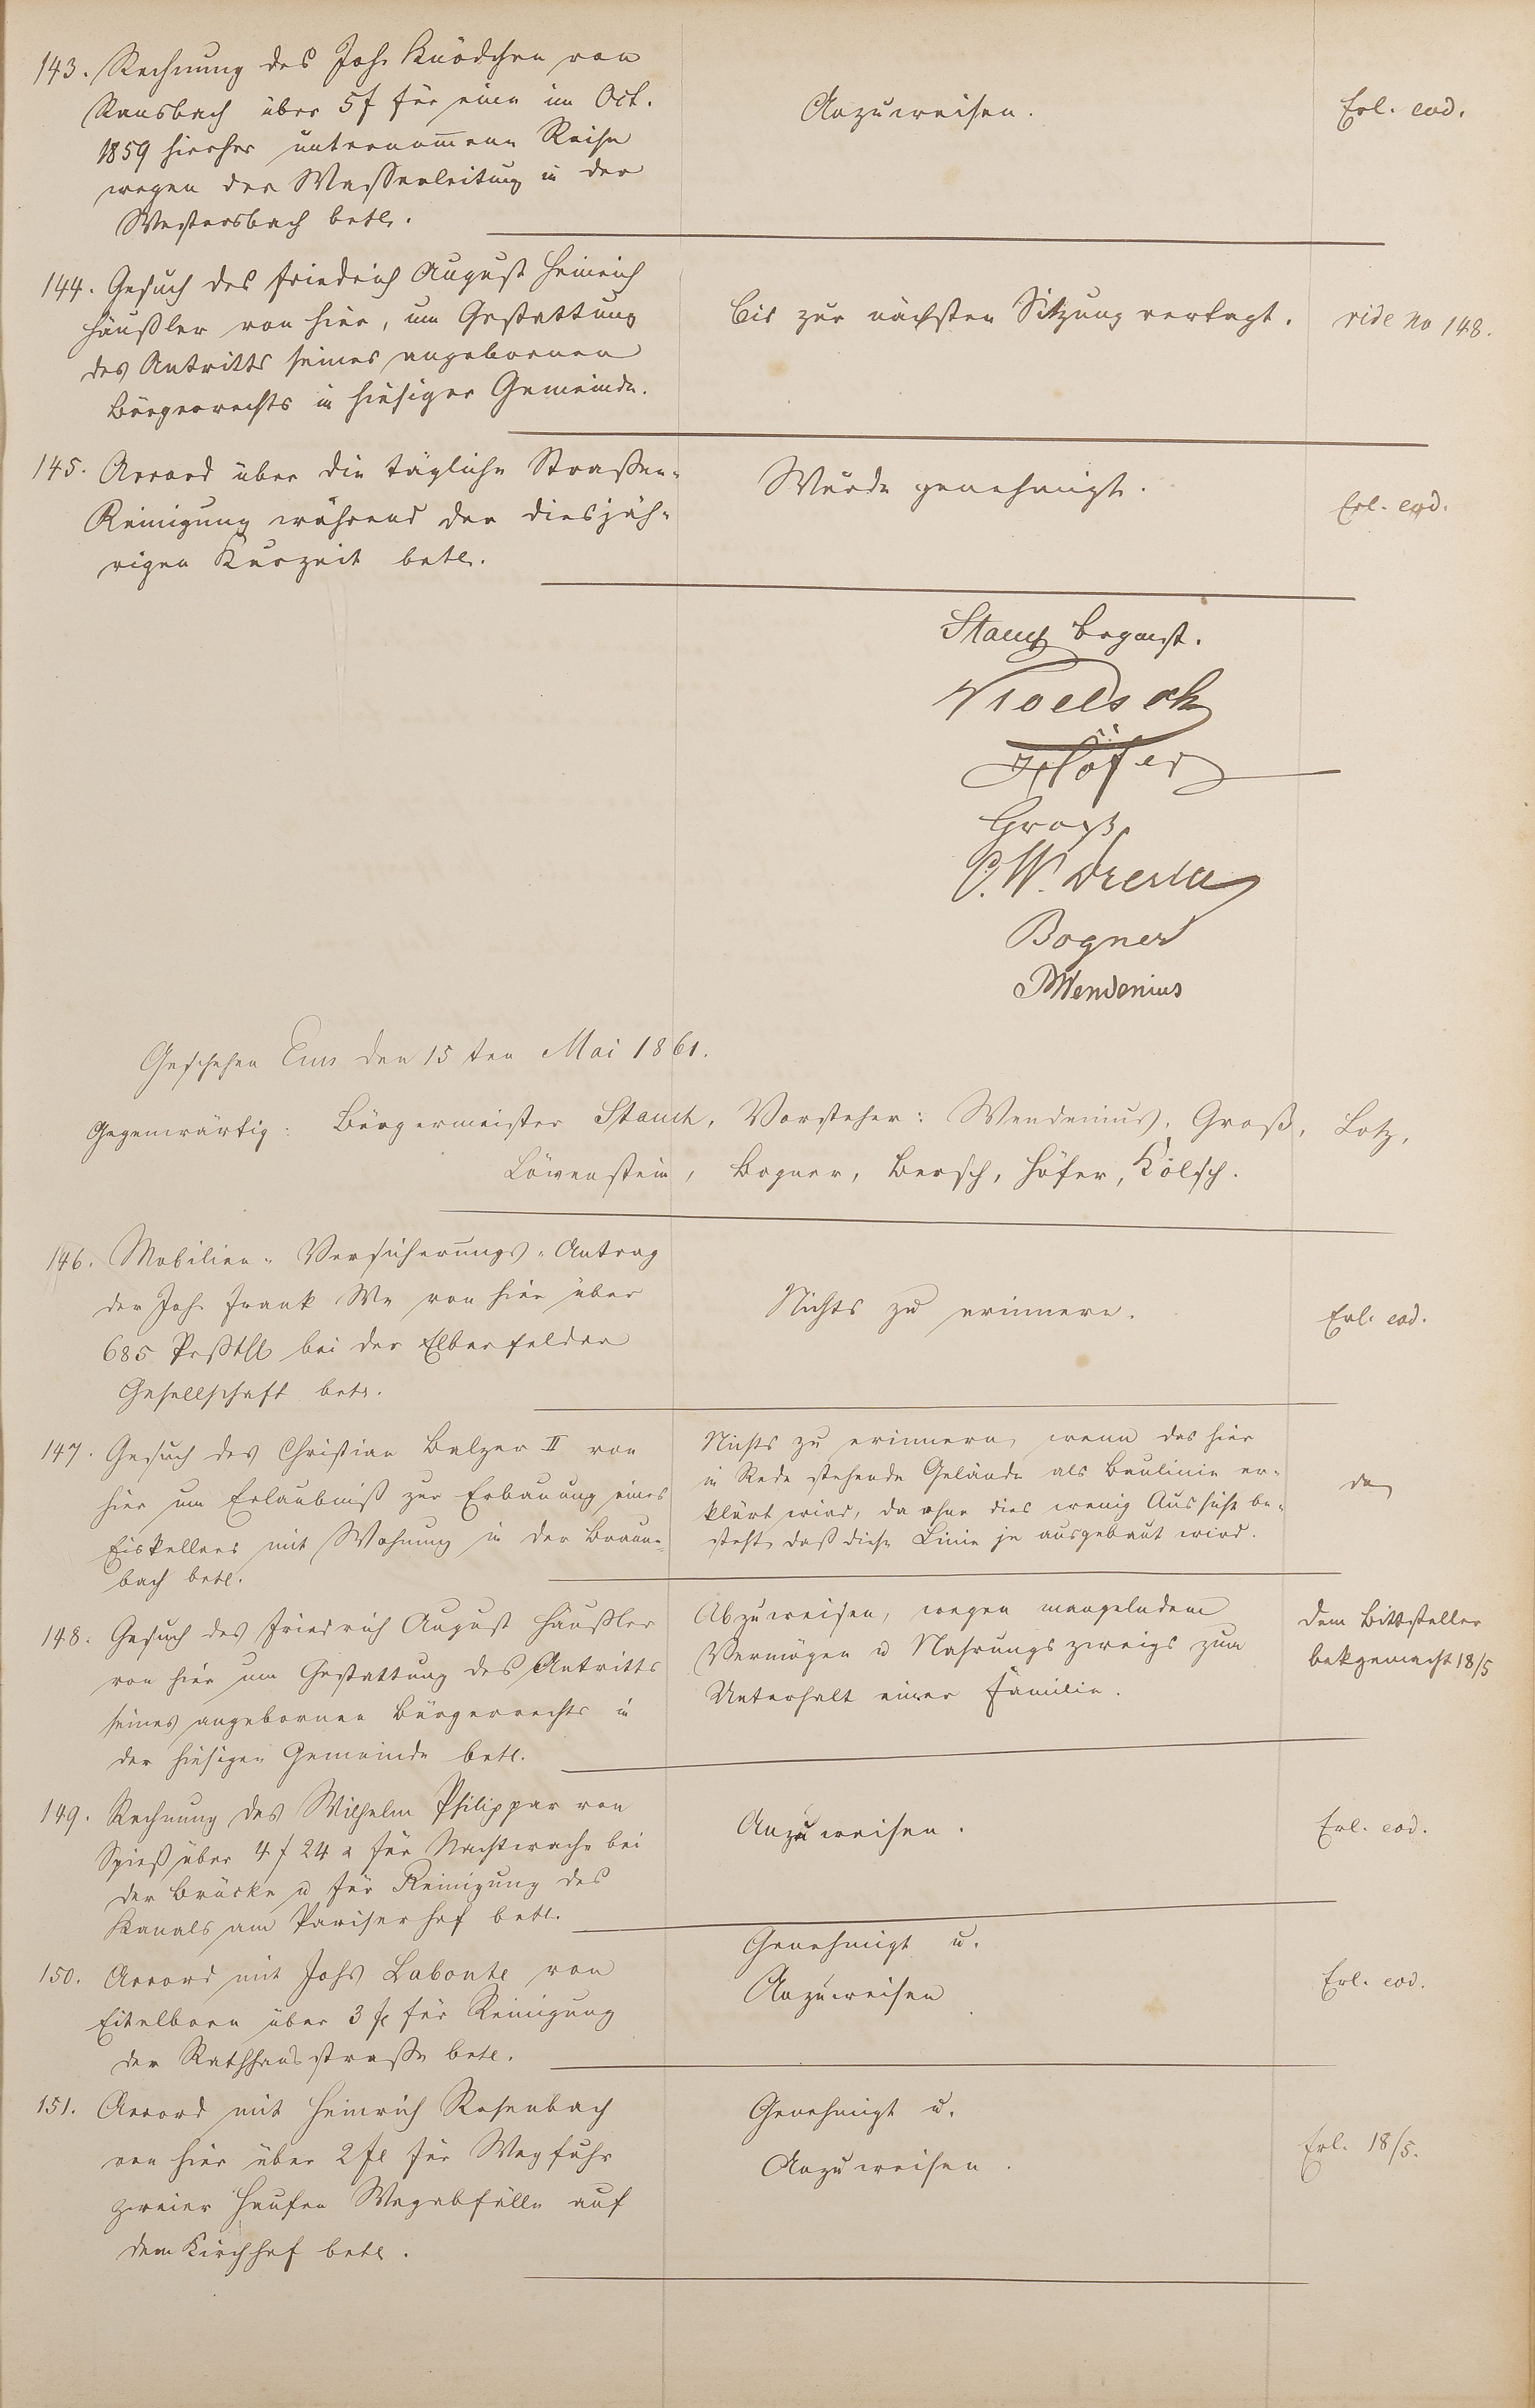 143. Rechnung des Joh. Knödchen von
Ransbach über 5 f für eine im Oct.
1859 hierher unternom̅ene Reise
wegen der Wasserleitung in der
Westersbach betr.
Anzuweisen.
Erl. eod.
144. Gesuch des Friedrich August Heinrich
Häußler von hier, um Gestattung
des Antritts seines angebornen
Bürgerrechts in hiesiger Gemeinde.
Bis zur nächsten Sitzung vertagt.
vide No 148.
145. Accord über die tägliche Straßen-
Reinigung während der diesjäh-
rigen Kurzeit betr.
Wurde genehmigt.
Erl. eod.
Stauch
Höfer
Groß
C. W.
Bogner
Wendenius
Geschehen Ems den 15ten Mai 1861.
Gegenwärtig: Bürgermeister Stauch, Vorsteher: Wendenius, Groß, Lotz,
Löwenstein, Bogner, Bersch, Höfer, Kölsch.
146. Mobilien-Versicherungs-Antrag
der Joh. Frank We von hier über
685 Prßthl bei der Elberfelder
Gesellschaft betr.
Nichts zu erinnern.
Erl. eod.
147. Gesuch des Christian Balzer II von
hier um Erlaubniß zur Erbauung eines
Eiskellers mit Wohnung in der Braun-
bach betr.
Nichts zu erinnern, wenn das hier
in Rede stehende Gelände als Baulinie er-
klärt wird, da ohne dies wenig Aussicht be-
steht, daß diese Linie je ausgebaut wird.
do
148. Gesuch des Friedrich August Häußler
von hier um Gestattung des Antritts
seines angebornen Bürgerrechts in
der hiesigen Gemeinde betr.
Abzuweisen, wegen mangelndem
Vermögen u Nahrungszweigs zum
Unterhalt einer Familie.
Dem Bittsteller
bekgemacht 18/5
149. Rechnung des Wilhelm Philippar von
Spieß über 4 f 24 x für Nachtwache bei
der Brücke u für Reinigung des
Kanals am Pariserhof betr.
Anzuweisen.
Erl. eod.
150. Accord mit Johs Labonte von
Eitelborn über 3 fl für Reinigung
der Rathhausstraße betr.
Genehmigt u.
Anzuweisen
Erl. eod.
151. Accord mit Heinrich Rosenbach
von hier über 2 fl für Wegfuhr
zweier Haufen Wegabfälle auf
dem Kirchhof betr.
Genehmigt u.
Anzuweisen.
Erl. 18/5.